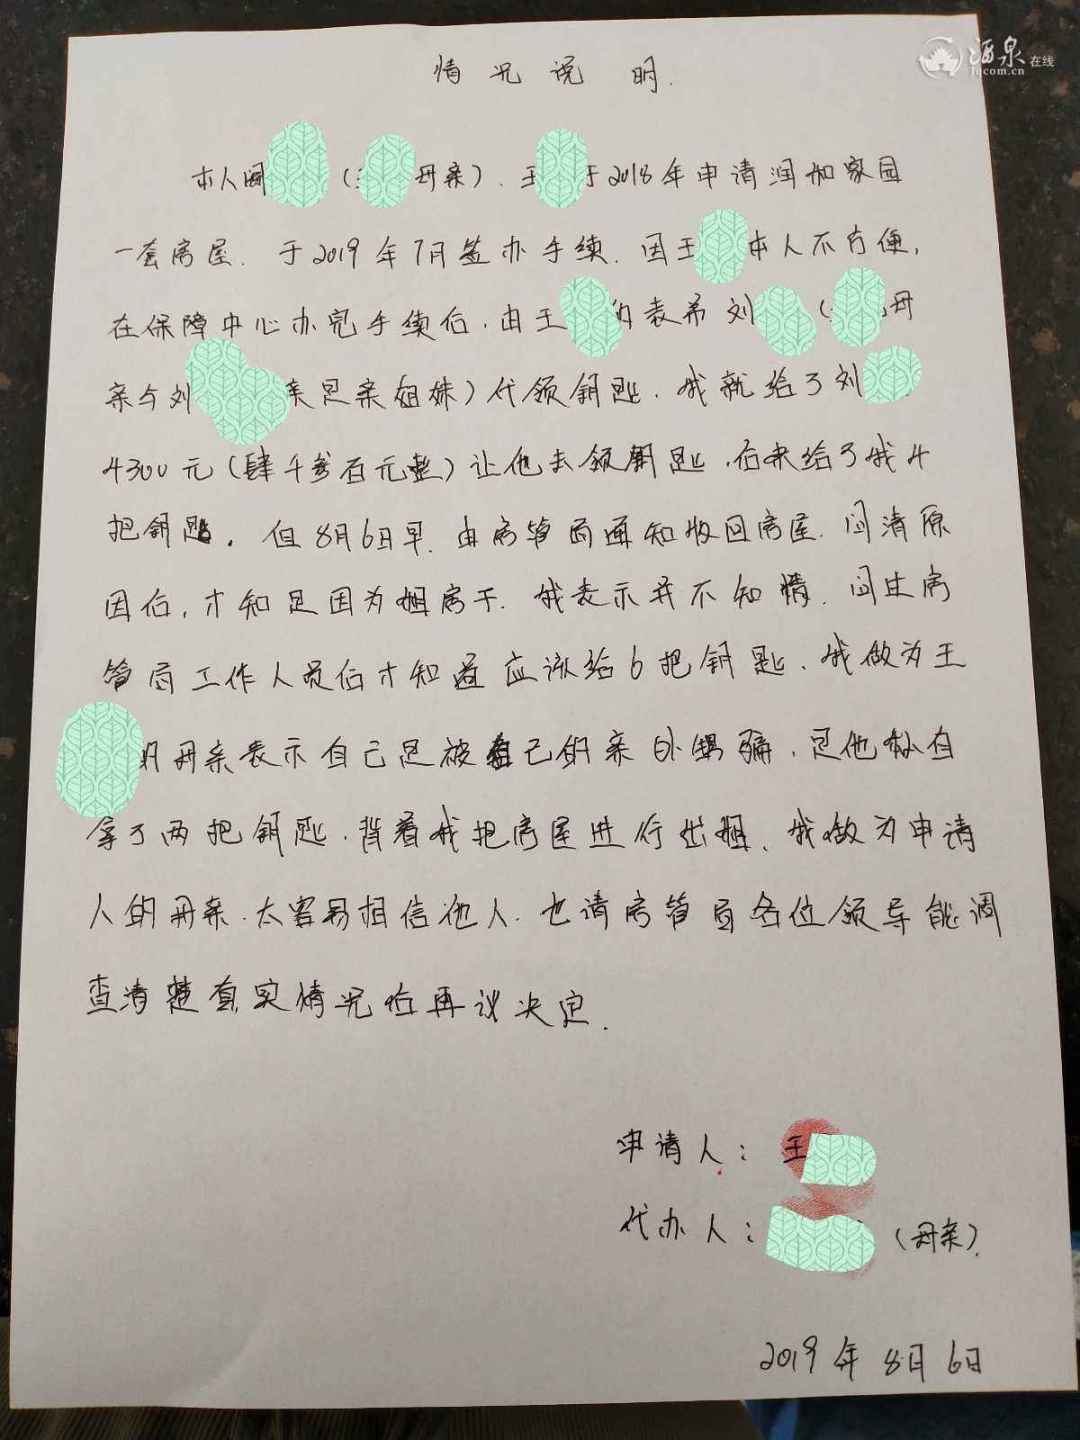 酒泉在线
jq.com.cn
情况说明.
本人闫（母亲）.王于2018年申请润如家园
一套房屋.于2019年7月签办手续.因王本人不方便,
在保障中心办完手续后.由王的表弟刘（母
亲与刘亲是亲姐妹）代领钥匙.我就给了刘
4300元(肆千叁百元整)让他去领钥匙.后来给了我4
把钥匙.但8月6日早.由房管局通知收回房屋.问清原
因后,才知是因为租房子.我表示并不知情.问过房
管局工作人员后才知道应该给6把钥匙.我做为王
的母亲表示自己是被自己的亲外甥骗.是他私自
拿了两把钥匙.背着我把房屋进行出租.我做为申请
人的母亲.太容易相信他人.也请房管局各位领导能调
查清楚真实情况后再议决定.
申请人：王
代办人：（母亲）.
2019年8月6日